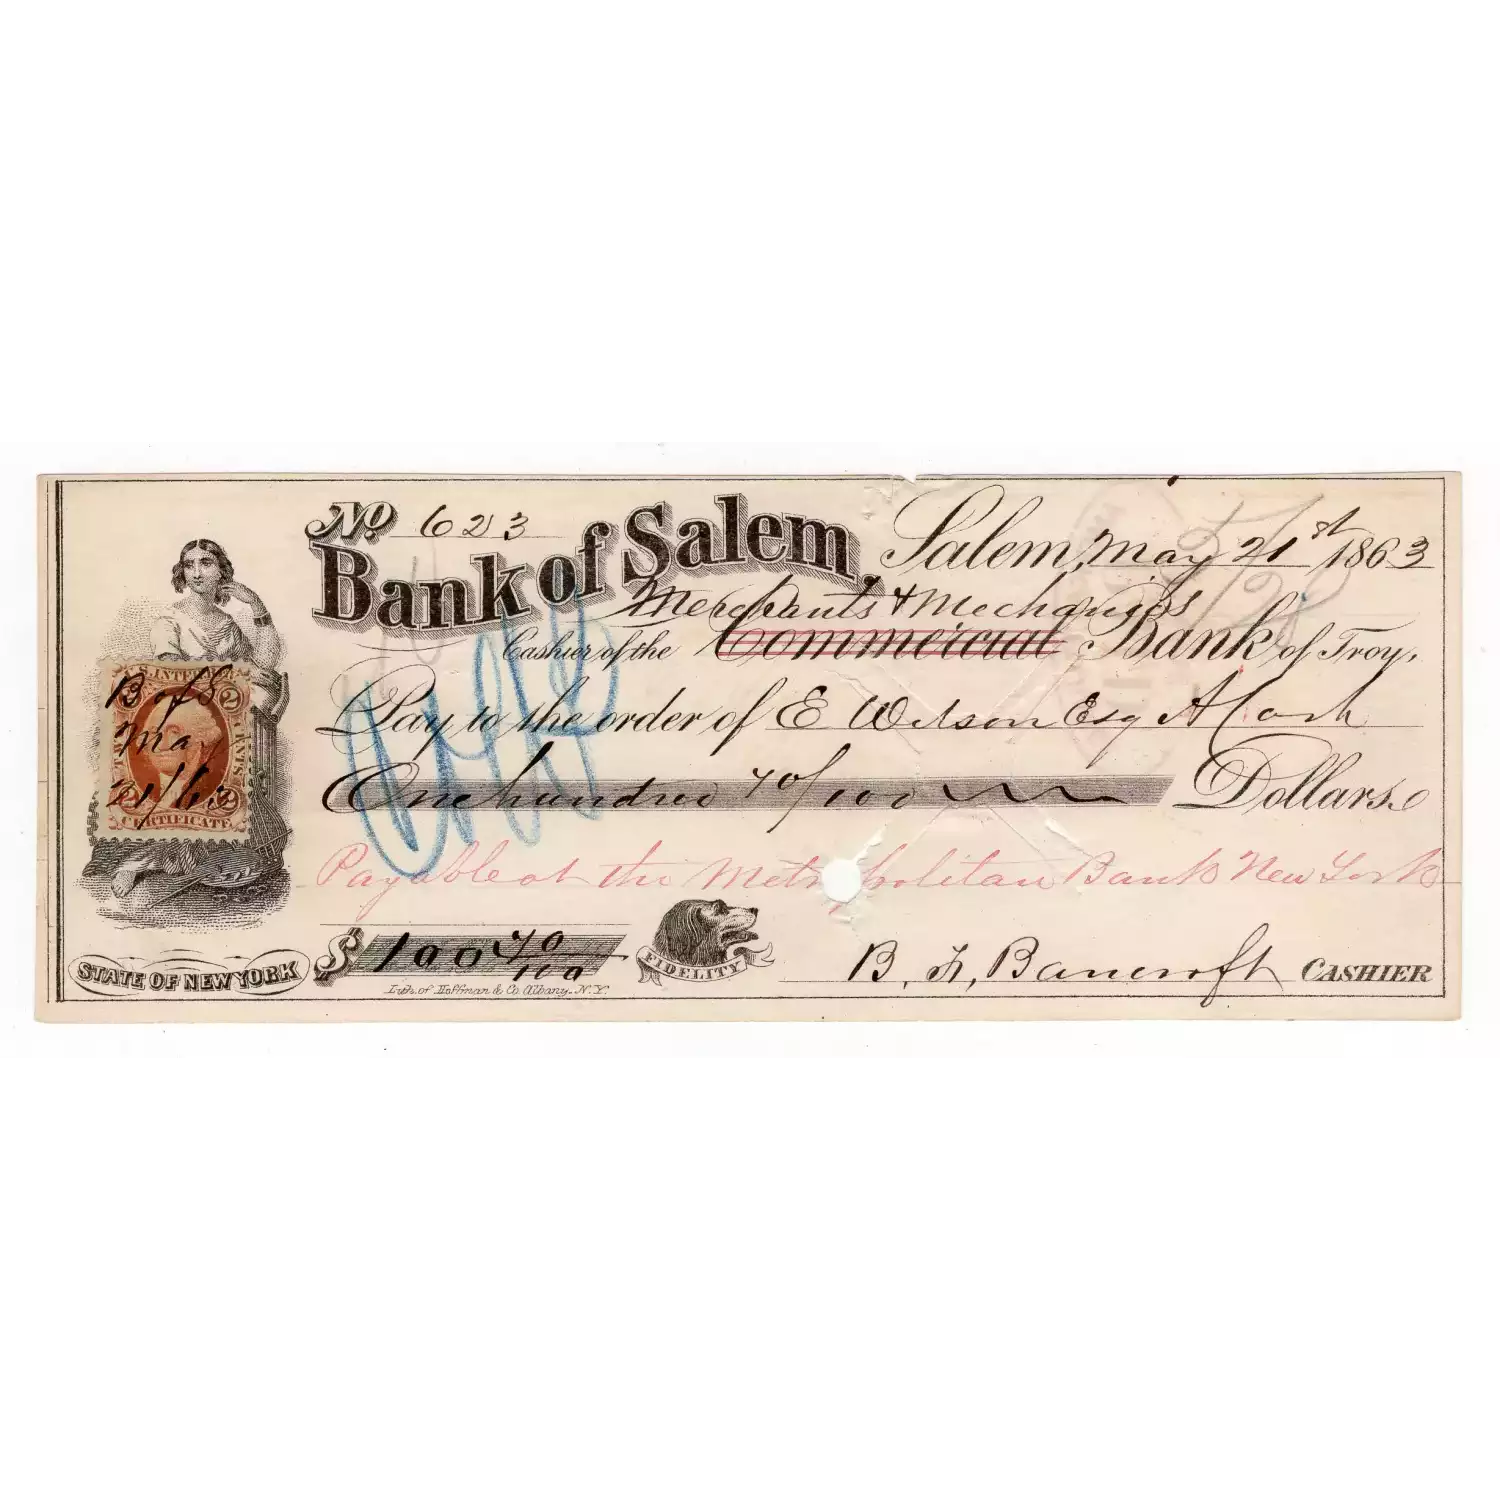 No 623
Bank of Salem, Salem, May 21st 1863
Merchants & Mechanics
Cashier of the Commercial Bank of Troy,
Pay to the order of E Wilson Esq A Cash
One hundred 40/100 Dollars
Payable at the Metropolitan Bank New York
$ 100 40/100
FIDELITY
B. F. Bancroft CASHIER
STATE OF NEW YORK
Lith. of Hoffman & Co. Albany, N.Y.
U.S. INTER. REV.
2 2
TWO CENTS
CERTIFICATE
B of S
May
21/63